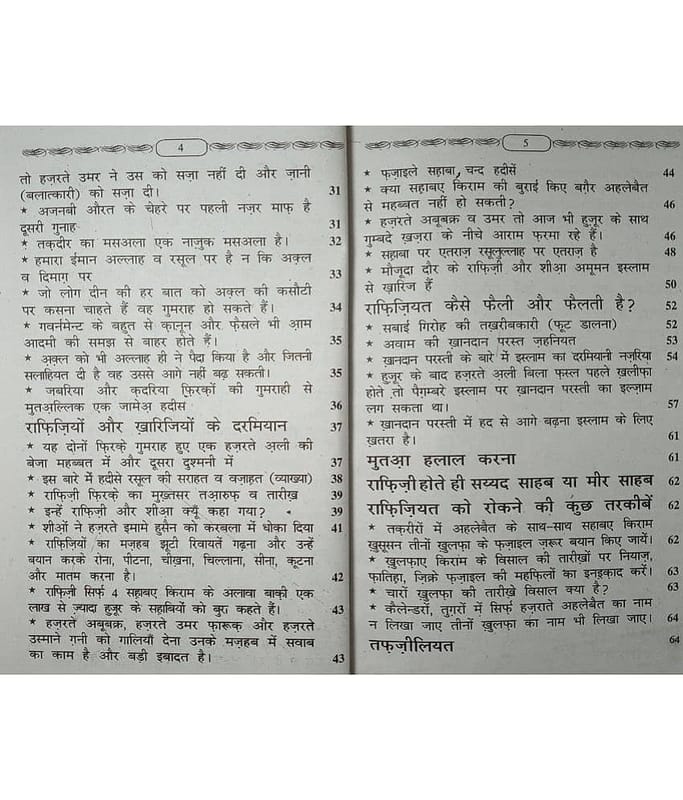 4
तो हज़रते उमर ने उस को सज़ा नहीं दी और ज़ानी
(बलात्कारी) को सज़ा दी। 31
★ अजनबी औरत के चेहरे पर पहली नज़र माफ़ है
दूसरी गुनाह 31
★ तक़दीर का मसअला एक नाज़ुक मसअला है। 32
★ हमारा ईमान अल्लाह व रसूल पर है न कि अक़्ल
व दिमाग़ पर 33
★ जो लोग दीन की हर बात को अक़्ल की कसौटी
पर कसना चाहते हैं वह गुमराह हो सकते हैं। 34
★ गवर्नमेन्ट के बहुत से क़ानून और फ़ैसले भी आम
आदमी की समझ से बाहर होते हैं। 35
★ अक़्ल को भी अल्लाह ही ने पैदा किया है और जितनी
सलाहियत दी है वह उससे आगे नहीं बढ़ सकती। 35
★ जबरिया और क़दरिया फ़िरक़ों की गुमराही से
मुतअ़ल्लिक़ एक जामेअ़ हदीस 36
राफ़िज़ियों और ख़ारिजियों के दरमियान 37
★ यह दोनों फ़िरक़े गुमराह हुए एक हज़रते अ़ली की
बेजा महब्बत में और दूसरा दुश्मनी में 37
★ इस बारे में हदीसे रसूल की सराहत व वज़ाहत (व्याख्या) 38
★ राफ़िज़ी फ़िरक़े का मुख़्तसर तआरुफ़ व तारीख़ 39
★ इन्हें राफ़िज़ी और शीआ क्यूँ कहा गया? 39
★ शीओं ने हज़रते इमामे हुसैन को करबला में धोका दिया 41
★ राफ़िज़ियों का मज़हब झूटी रिवायतें गढ़ना और उन्हें
बयान करके रोना, पीटना, चीख़ना, चिल्लाना, सीना, कूटना
और मातम करना है। 42
★ राफ़िज़ी सिर्फ़ 4 सहाबए किराम के अलावा बाक़ी एक
लाख से ज़्यादा हुज़ूर के सहाबियों को बुरा कहते हैं। 43
★ हज़रते अबूबक्र, हज़रते उमर फ़ारूक़ और हज़रते
उस्माने ग़नी को गालियाँ देना उनके मज़हब में सवाब
का काम है और बड़ी इबादत है। 43
5
★ फ़ज़ाइले सहाबा, चन्द हदीसें 44
★ क्या सहाबए किराम की बुराई किए बग़ैर अहलेबैत
से महब्बत नहीं हो सकती? 46
★ हज़रते अबूबक्र व उमर तो आज भी हुज़ूर के साथ
गुम्बदे ख़ज़रा के नीचे आराम फ़रमा रहे हैं। 46
★ सहाबा पर एतराज़ रसूलुल्लाह पर एतराज़ है 48
★ मौजूदा दौर के राफ़िज़ी और शीआ अमूमन इस्लाम
से ख़ारिज हैं 50
राफ़िज़ियत कैसे फैली और फैलती है? 52
★ सबाई गिरोह की तख़रीबकारी (फूट डालना) 52
★ अवाम की ख़ानदान परस्त ज़हनियत 53
★ ख़ानदान परस्ती के बारे में इस्लाम का दरमियानी नज़रिया 54
★ हुज़ूर के बाद हज़रते अली बिला फ़स्ल पहले ख़लीफ़ा
होते तो पैग़म्बरे इस्लाम पर ख़ानदान परस्ती का इल्ज़ाम
लग सकता था। 57
★ ख़ानदान परस्ती में हद से आगे बढ़ना इस्लाम के लिए
ख़तरा है। 61
मुतआ़ हलाल करना 61
राफ़िज़ी होते ही सय्यद साहब या मीर साहब 62
राफ़िज़ियत को रोकने की कुछ तरकीबें 62
★ तक़रीरों में अहलेबैत के साथ-साथ सहाबए किराम
ख़ुसूसन तीनों ख़ुलफ़ा के फ़ज़ाइल ज़रूर बयान किए जायें। 62
★ ख़ुलफ़ाए किराम के विसाल की तारीख़ों पर नियाज़,
फ़ातिहा, ज़िक्रे फ़ज़ाइल की महफ़िलों का इनइक़ाद करें। 63
★ चारों ख़ुलफ़ा की तारीख़े विसाल क्या है? 63
★ कैलेन्डरों, तुग़रों में सिर्फ़ हज़राते अहलेबैत का नाम
न लिखा जाए तीनों ख़ुलफ़ा का नाम भी लिखा जाए। 64
तफ़ज़ीलियत 64